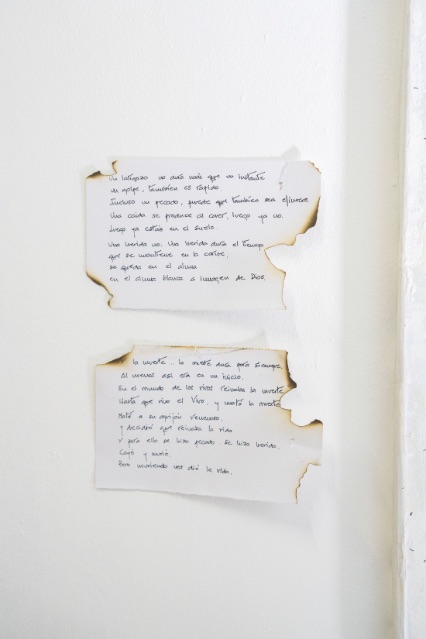 Un latigazo no dura más que un instante
un golpe, también es rápido
Incluso un pecado, puede que también sea efímero.
Una caída se prolonga al caer, luego ya no.
Luego ya estás en el suelo.
Una herida no. Una herida dura el tiempo
que se mantiene en la carne,
se queda en el alma
en el alma blanca a imagen de Dios.
la muerte.. la muerte dura para siempre,
Al menos así era en un inicio.
En el mundo de los vivos reinaba la muerte
Hasta que vino el Vivo, y mató la muerte
Mató a su aguijón venenoso.
y decidió que reinaba la vida
y para ello se hizo pecado. Se hizo herida.
Cayó y murió.
Pero muriendo nos dió la vida.